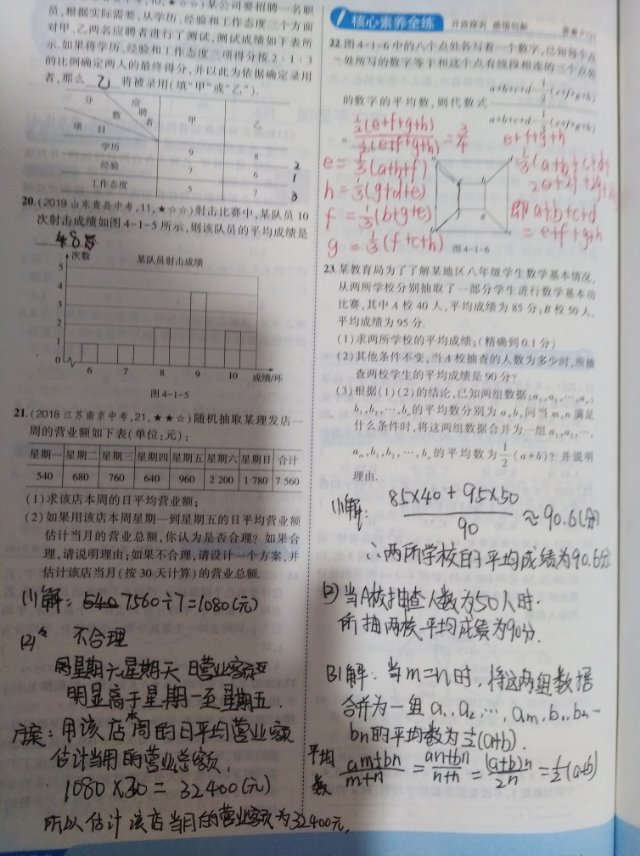 职员,根据实际需要,从学历、经验和工作态度三个方面
对甲、乙两名应聘者进行了测试,测试成绩如下表所
示.如果将学历、经验和工作态度三项得分按2:1:3
的比例确定两人的最终得分,并以此为依据确定录用
者,那么 乙 将被录用(填“甲”或“乙”).
应聘者
分数
项目
甲 乙
学历 9 8 2
经验 7 6 1
工作态度 5 7 3
20.(2019山东青岛中考,11,★☆☆)射击比赛中,某队员10
次射击成绩如图4-1-5所示,则该队员的平均成绩是
次数
某队员射击成绩
5
4
3
2
1
0
6 7 8 9 10 成绩/环
图4-1-5
21.(2018江苏南京中考,21,★★☆)随机抽取某理发店一
周的营业额如下表(单位:元):
星期一 星期二 星期三 星期四 星期五 星期六 星期日 合计
540 680 760 640 960 2 200 1 780 7 560
(1)求该店本周的日平均营业额;
(2)如果用该店本周星期一到星期五的日平均营业额
估计当月的营业总额,你认为是否合理?如果合
理,请说明理由;如果不合理,请设计一个方案,并
估计该店当月(按30天计算)的营业总额.
(1)解: 7560÷7=1080(元)
(2) 不合理
因星期六星期天 日营业额
明显高于星期一至星期五.
方案:用该店本周的日平均营业额
估计当月的营业总额.
1080×30=32400(元)
所以估计该店当月的营业额为32400元.
核心素养全练
22.图4-1-6中的八个点处各写着一个数字,已知每个点
处所写的数字等于和这个点有线段相连的三个点处
的数字的平均数,则代数式 a+b+c+d-1/2(e+f+g+h)
a+b+c+d-1/3(e+f+g+h)
1/2(e+f+g+h)
2/3(e+f+g+h) = 3/4
e=1/3(a+h+f)
h=1/3(g+d+e)
f=1/3(b+g+e)
g=1/3(f+c+h)
e+f+g+h
即 a+b+c+d
=e+f+g+h
图4-1-6
23.某教育局为了了解某地区八年级学生数学基本情况,
从两所学校分别抽取了一部分学生进行数学基本功
比赛,其中A校40人,平均成绩为85分;B校50人,
平均成绩为95分.
(1)求两所学校的平均成绩;(精确到0.1分)
(2)其他条件不变,当A校抽查的人数为多少时,所抽
查两校学生的平均成绩是90分?
(3)根据(1)(2)的结论,已知两组数据:a₁,a₂,…,aₘ;
b₁,b₂,…,bₙ的平均数分别为a,b,问当m,n满足
什么条件时,将这两组数据合并为一组a₁,a₂,…,
aₘ,b₁,b₂,…,bₙ的平均数为1/2(a+b)?并说明
理由.
(1)解: (85×40+95×50)/90 ≈90.6(分)
∴两所学校的平均成绩为90.6分
(2)当A校抽查人数为50人时.
所抽两校平均成绩为90分.
(3)解:当m=n时,将这两组数据
合并为一组 a₁、a₂、…,am,b₁,b₂,…
bn的平均数为1/2(a+b).
平均数 (am+bn)/(m+n)=(an+bn)/(n+n)=((a+b)n)/2n=1/2(a+b)